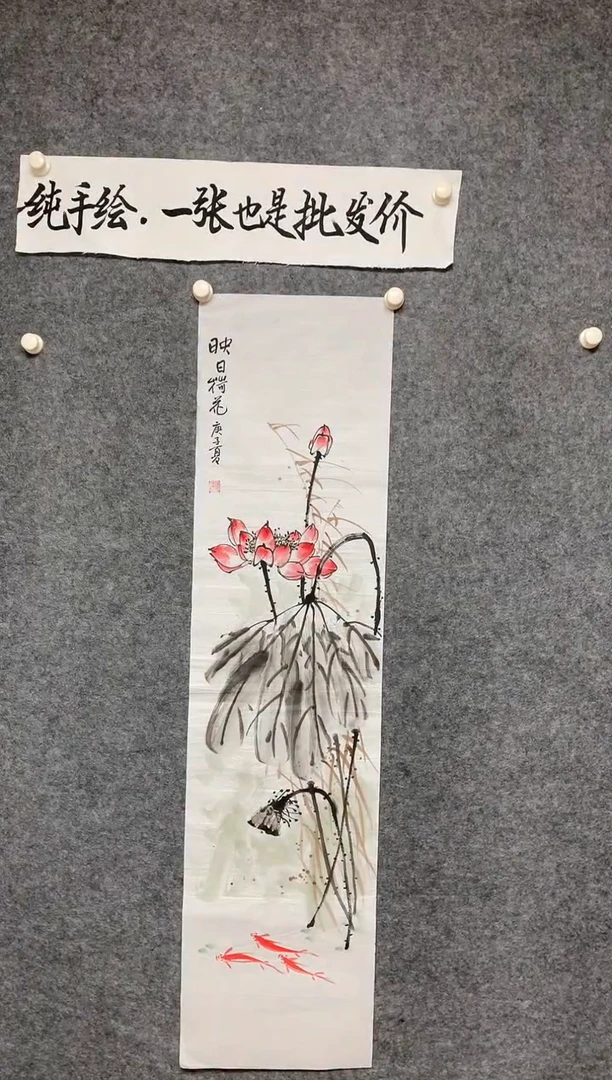 纯手绘.一张也是批发价
映日荷花 庚子夏